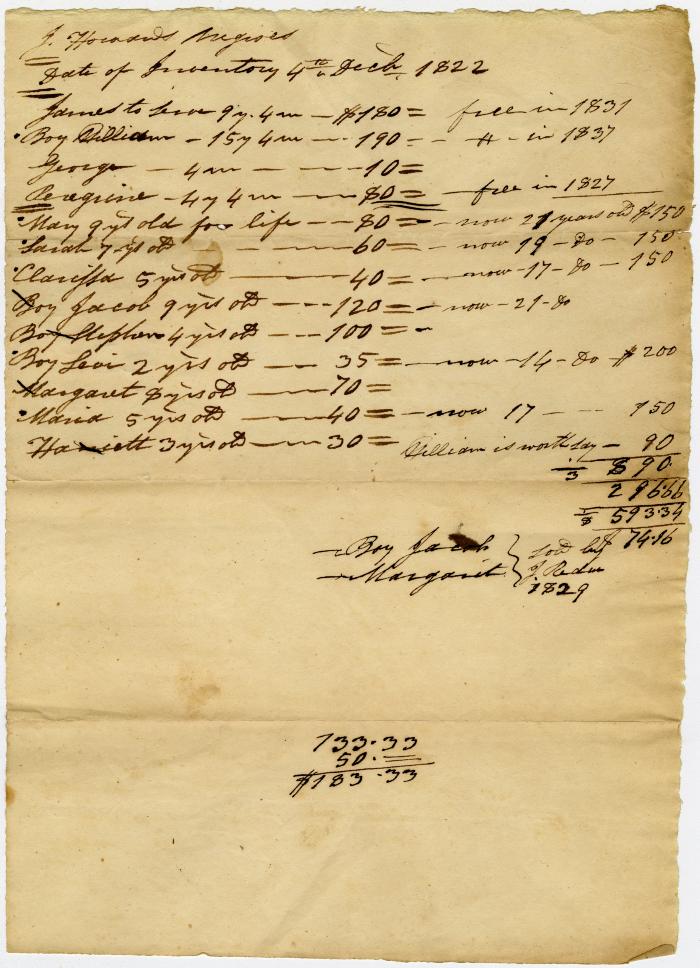 J. Howards Negroes
Date of Inventory 4th Decb. 1822
James to serve 9y. 4m — $180 = free in 1831
Boy William - 15y 4m — 190 - - " - in 1837
George — 4m — 10 =
Peregrine - 4y 4m — 80 = — free in 1827
Mary 9 yrs old for life - - 80 = - now 21 years old $150
Sarah 7 yrs old — 60 = - now 19 - do - 150
Clarissa 5 yrs old — 40 = - now - 17 - do - 150
Boy Jacob 9 yrs old - - - 120 = - now - 21 - do
Boy Stephen 4 yrs old - - - 100 = -
Boy Levi 2 yrs old - - 35 = — now - 14 - do - $200
Margaret 8 yrs old — 70 =
Maria 5 yrs old — 40 = - now 17 - - - 150
Harriett 3 yrs old — 30 =
William is worth say - 90
1/3 890.
296.66
1/8 593.34
74.16
— Boy Jacob } sold by
— Margaret } J.
1829
133.33
50. =
$183.33